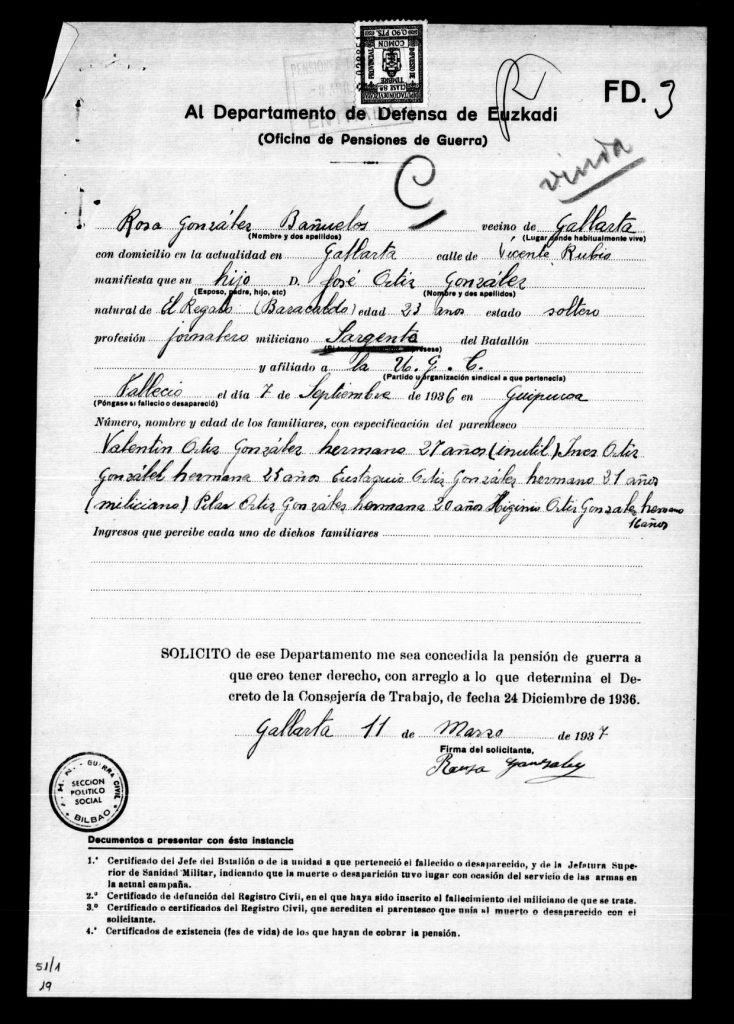 IMPUESTO DE
COMUN
PROVINCIAL
0,90 PTS.
TIMBRE
CLASE 8ª
FD. 3
Al Departamento de Defensa de Euzkadi
(Oficina de Pensiones de Guerra)
viuda
C
Rosa González Bañuelos vecino de Gallarta
(Nombre y dos apellidos) (Lugar donde habitualmente vive)
con domicilio en la actualidad en Gallarta calle de Vicente Rubio
manifiesta que su hijo D. José Ortiz González
(Esposo, padre, hijo, etc) (Nombre y dos apellidos)
natural de El Regato (Baracaldo) edad 23 años estado soltero
profesión jornalero miliciano Sargento del Batallón
y afiliado a la U. G. C.
(Partido u organización sindical a que pertenecía)
Fallecio el día 7 de Septiembre de 1936 en Guipuzcoa
(Póngase si falleció o desapareció)
Número, nombre y edad de los familiares, con especificación del parentesco
Valentin Ortiz González hermano 27 años (inutil) Ines Ortiz
González hermana 25 años Eustaquio Ortiz González hermano 31 años
(miliciano) Pilar Ortiz González hermana 20 años Higinio Ortiz Gonzalez hermano
16 años
Ingresos que percibe cada uno de dichos familiares
SOLICITO de ese Departamento me sea concedida la pensión de guerra a
que creo tener derecho, con arreglo a lo que determina el De-
creto de la Consejería de Trabajo, de fecha 24 Diciembre de 1936.
Gallarta 11 de Marzo de 1937
Firma del solicitante,
Rosa Gonzalez
GUERRA CIVIL
SECCION
POLITICO
SOCIAL
BILBAO
Documentos a presentar con ésta instancia
1.º Certificado del Jefe del Batallón o de la unidad a que perteneció el fallecido o desaparecido, y de la Jefatura Supe-
rior de Sanidad Militar, indicando que la muerte o desaparición tuvo lugar con ocasión del servicio de las armas en
la actual campaña.
2.º Certificado de defunción del Registro Civil, en el que haya sido inscrito el fallecimiento del miliciano de que se trate.
3.º Certificado o certificados del Registro Civil, que acrediten el parentesco que unía al muerto o desaparecido con el
solicitante.
4.º Certificados de existencia (fes de vida) de los que hayan de cobrar la pensión.
51/1
19